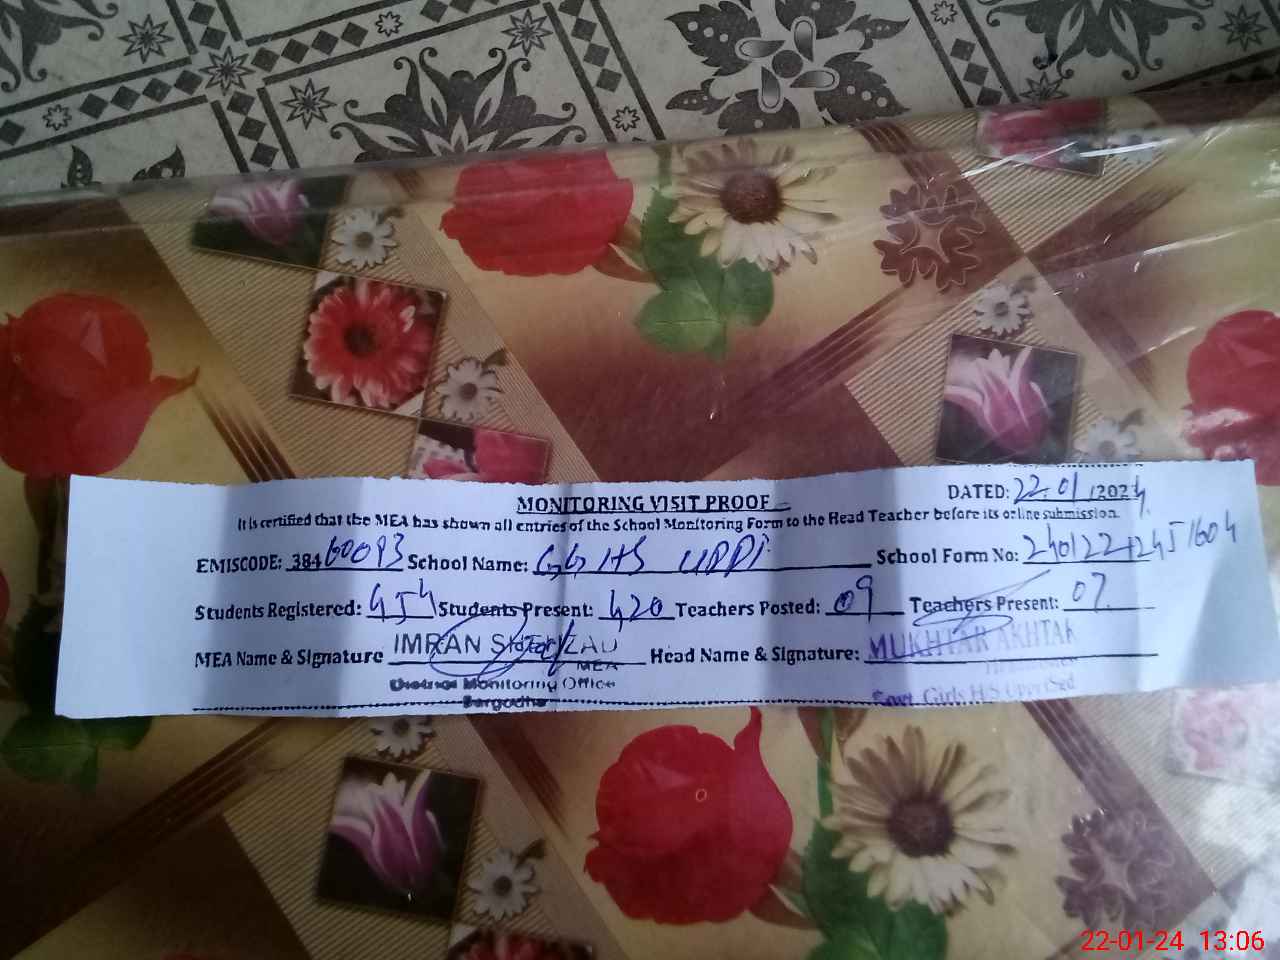 MONITORING VISIT PROOF
DATED: 22.01/2024
It is certified that the MEA has shown all entries of the School Monitoring Form to the Head Teacher before its online submission.
EMISCODE: 38460093 School Name: GGHS UPPI School Form No:
Students Registered: 454 Students Present: 420 Teachers Posted: 09 Teachers Present: 07
MEA Name & Signature IMRAN Head Name & Signature: MUKHTAR AKHTAR
MEA
District Monitoring Office
Sargodha
Govt. Girls H/S
22-01-24 13:06